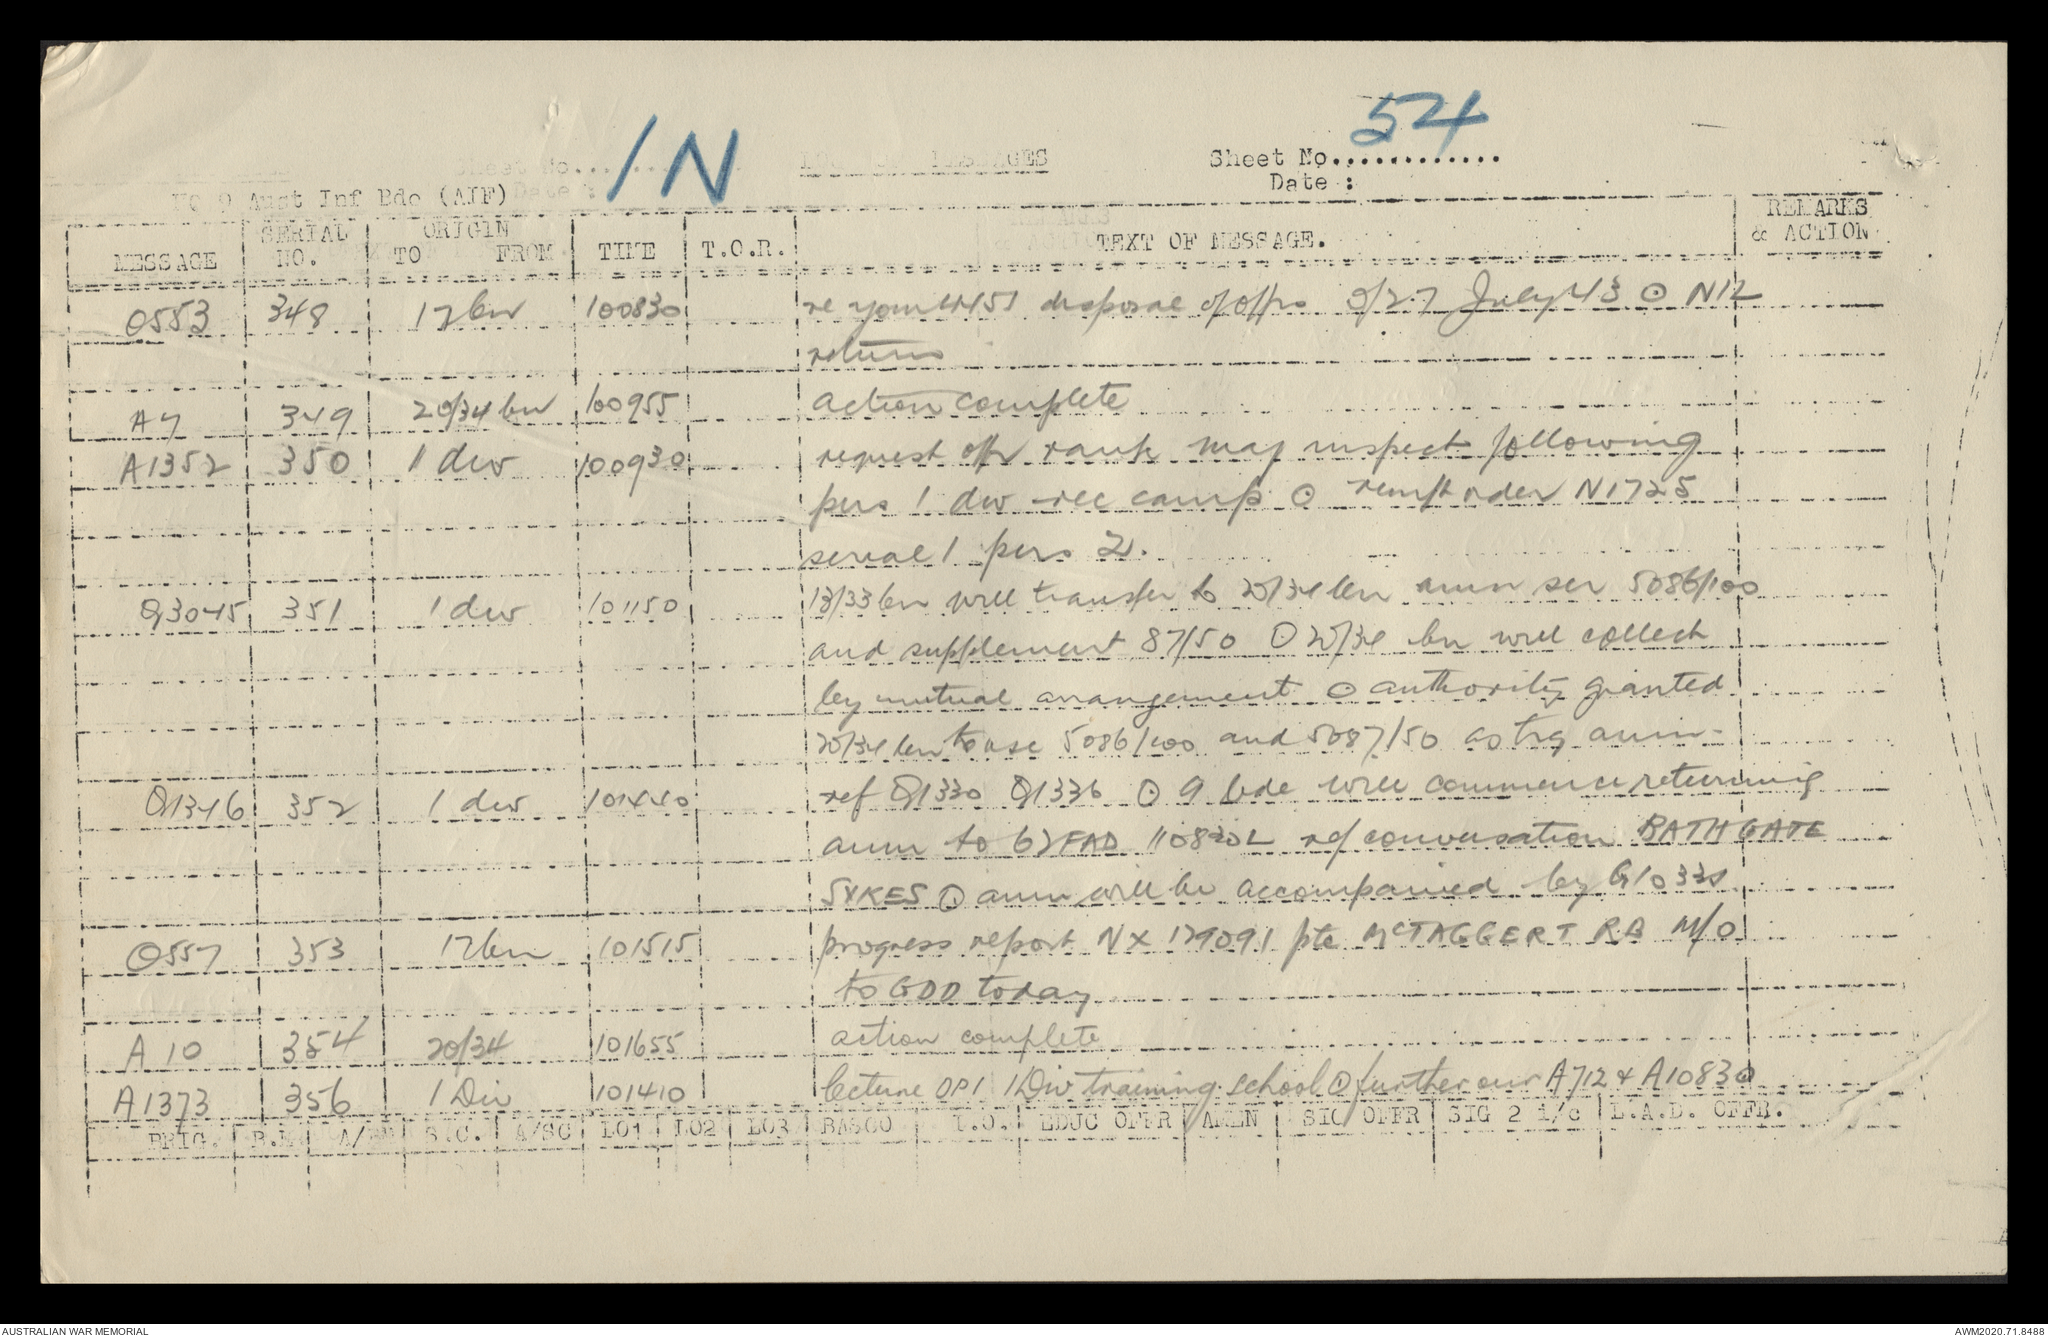 IN
54
LOG OF MESSAGES
Sheet No............
Date :
HQ 9 Aust Inf Bde (AIF)
MESSAGE SERIAL NO. ORIGIN TO FROM TIME T.O.R. TEXT OF MESSAGE. REMARKS & ACTION
O553 348 17 bn 100830 re your 4451 disposal of offrs d/27 July 43 ⊙ N12
returns
A7 349 20/34 bn 100955 action complete
A1352 350 1 div 100930 request offr rank maj inspect following
pers 1 div rec camp ⊙ reinft order N1725
serial 1 pers 2.
Q3045 351 1 div 101150 13/33 bn will transfer to 20/34 bn amn ser 5086/100
and supplement 87/50 ⊙ 20/34 bn will collect
by mutual arrangement ⊙ authority granted
20/34 bn to use 5086/100 and 5087/50 as trg amn-
Q1346 352 1 div 101440 ref Q1330 Q1336 ⊙ 9 bde will commence returning
amn to 62 FAD 110830L ref conversation BATHGATE
SYKES ⊙ amn will be accompanied by G1033s
O557 353 17 bn 101515 progress report NX 129091 pte McTAGGERT RB M/O
to GDD today
A10 354 20/34 101655 action complete
A1373 356 1 Div 101410 lecture OP1 1 Div training school ⊙ further our A712 & A10830
BRIG. B.M. A/ S.C. A/SC LO1 LO2 LO3 BASCO I.O. EDUC OFFR AMEN SIG OFFR SIG 2 i/c L.A.D. OFFR.
AUSTRALIAN WAR MEMORIAL
AWM2020.71.8488